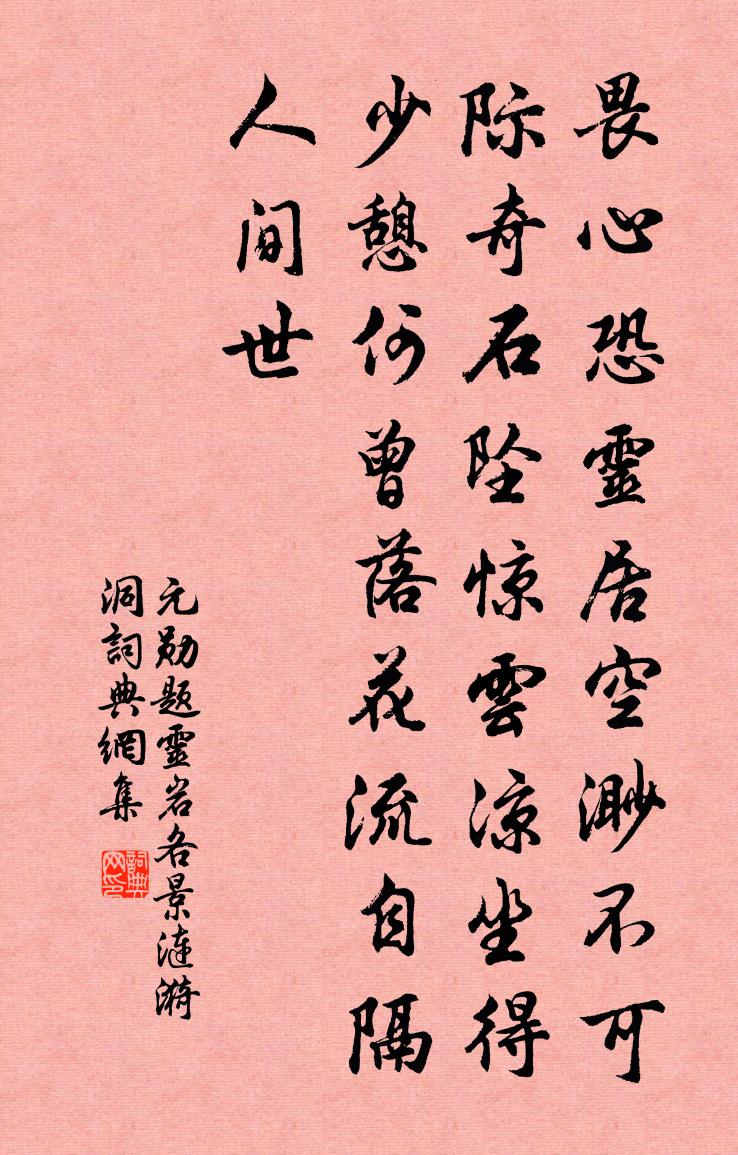 畏心恐靈居空渺不可
际奇石坠惊雲凉坐得
少憩何曾落花流自隔
人间世
元勋题靈岩各景涟漪
洞詞典網集
詞典网印